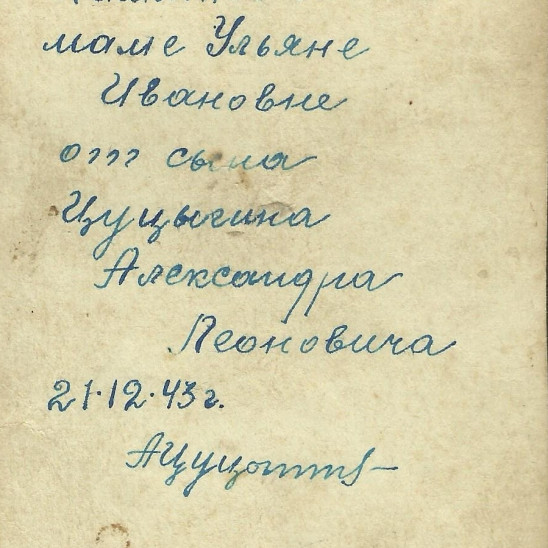 маме Ульяне
Ивановне
от сына
Цуцыгина
Александра
Леоновича
21.12.43 г.